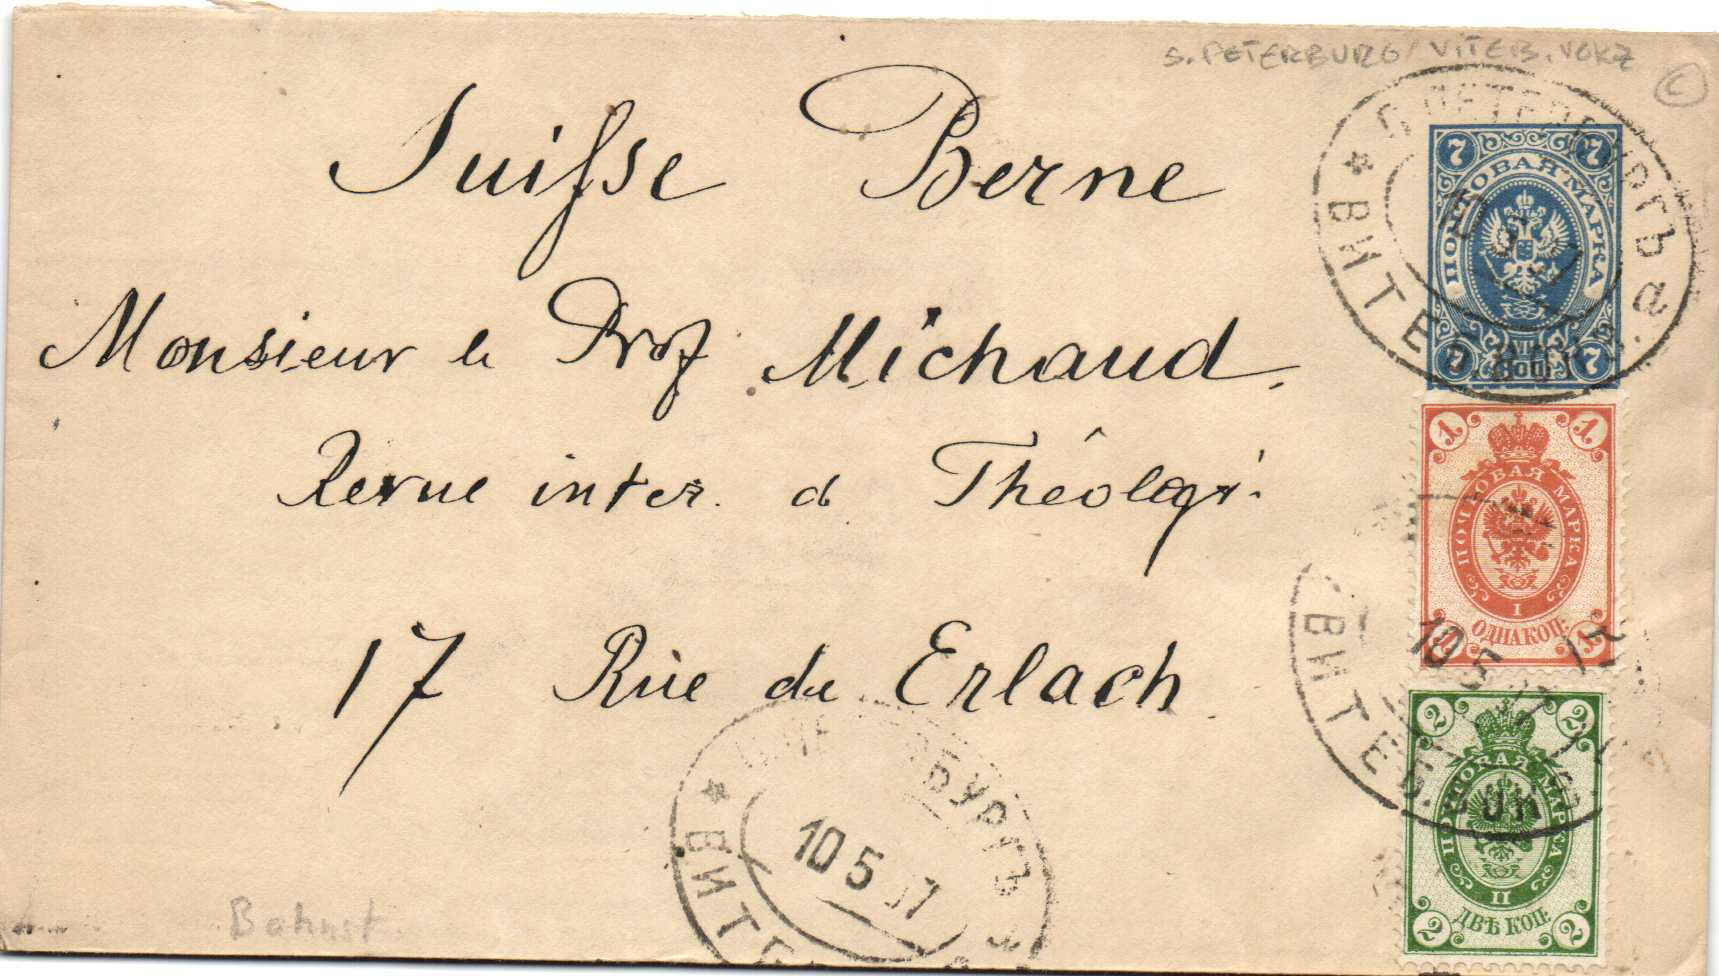 S. PETERBURG / VITEB. VOKZ
C
Suisse Berne
С.ПЕТЕРБУРГЪ
а
ВИТЕБ. ВОКЗ.
7 7
ПОЧТОВАЯ МАРКА
7 КОП. 7
Monsieur le Prof Michaud.
1 1
ПОЧТОВАЯ МАРКА
I
ОДНА КОП.
1 1
Revue inter. d Théologi.
10 5
ВИТЕБ. ВОК
17 Rue du Erlach
2 2
ПОЧТОВАЯ МАРКА
II
ДВѢ КОП.
2 2
С.ПЕТЕРБУРГЪ
10 5 07
ВИТЕ
Bahnst.